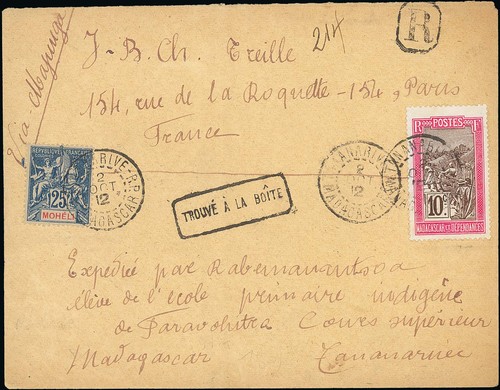 Via-Majunga
J-B. Ch. Treille
214
R
154, rue de la Roquette-154, Paris
France
RÉPUBLIQUE FRANÇAISE
25
MOHÉLI
TANANARIVE-R.P.
2
OCT.
12
MADAGASCAR
TROUVÉ À LA BOÎTE
TANANARIVE
2
OCT
12
MADAGASCAR
POSTES
10c
MADAGASCAR ET DÉPENDANCES
Expedié par Rabemanantsoa
élève de l'école primaire indigène
de Faravohitra Cours supérieur
Madagascar Tananarive